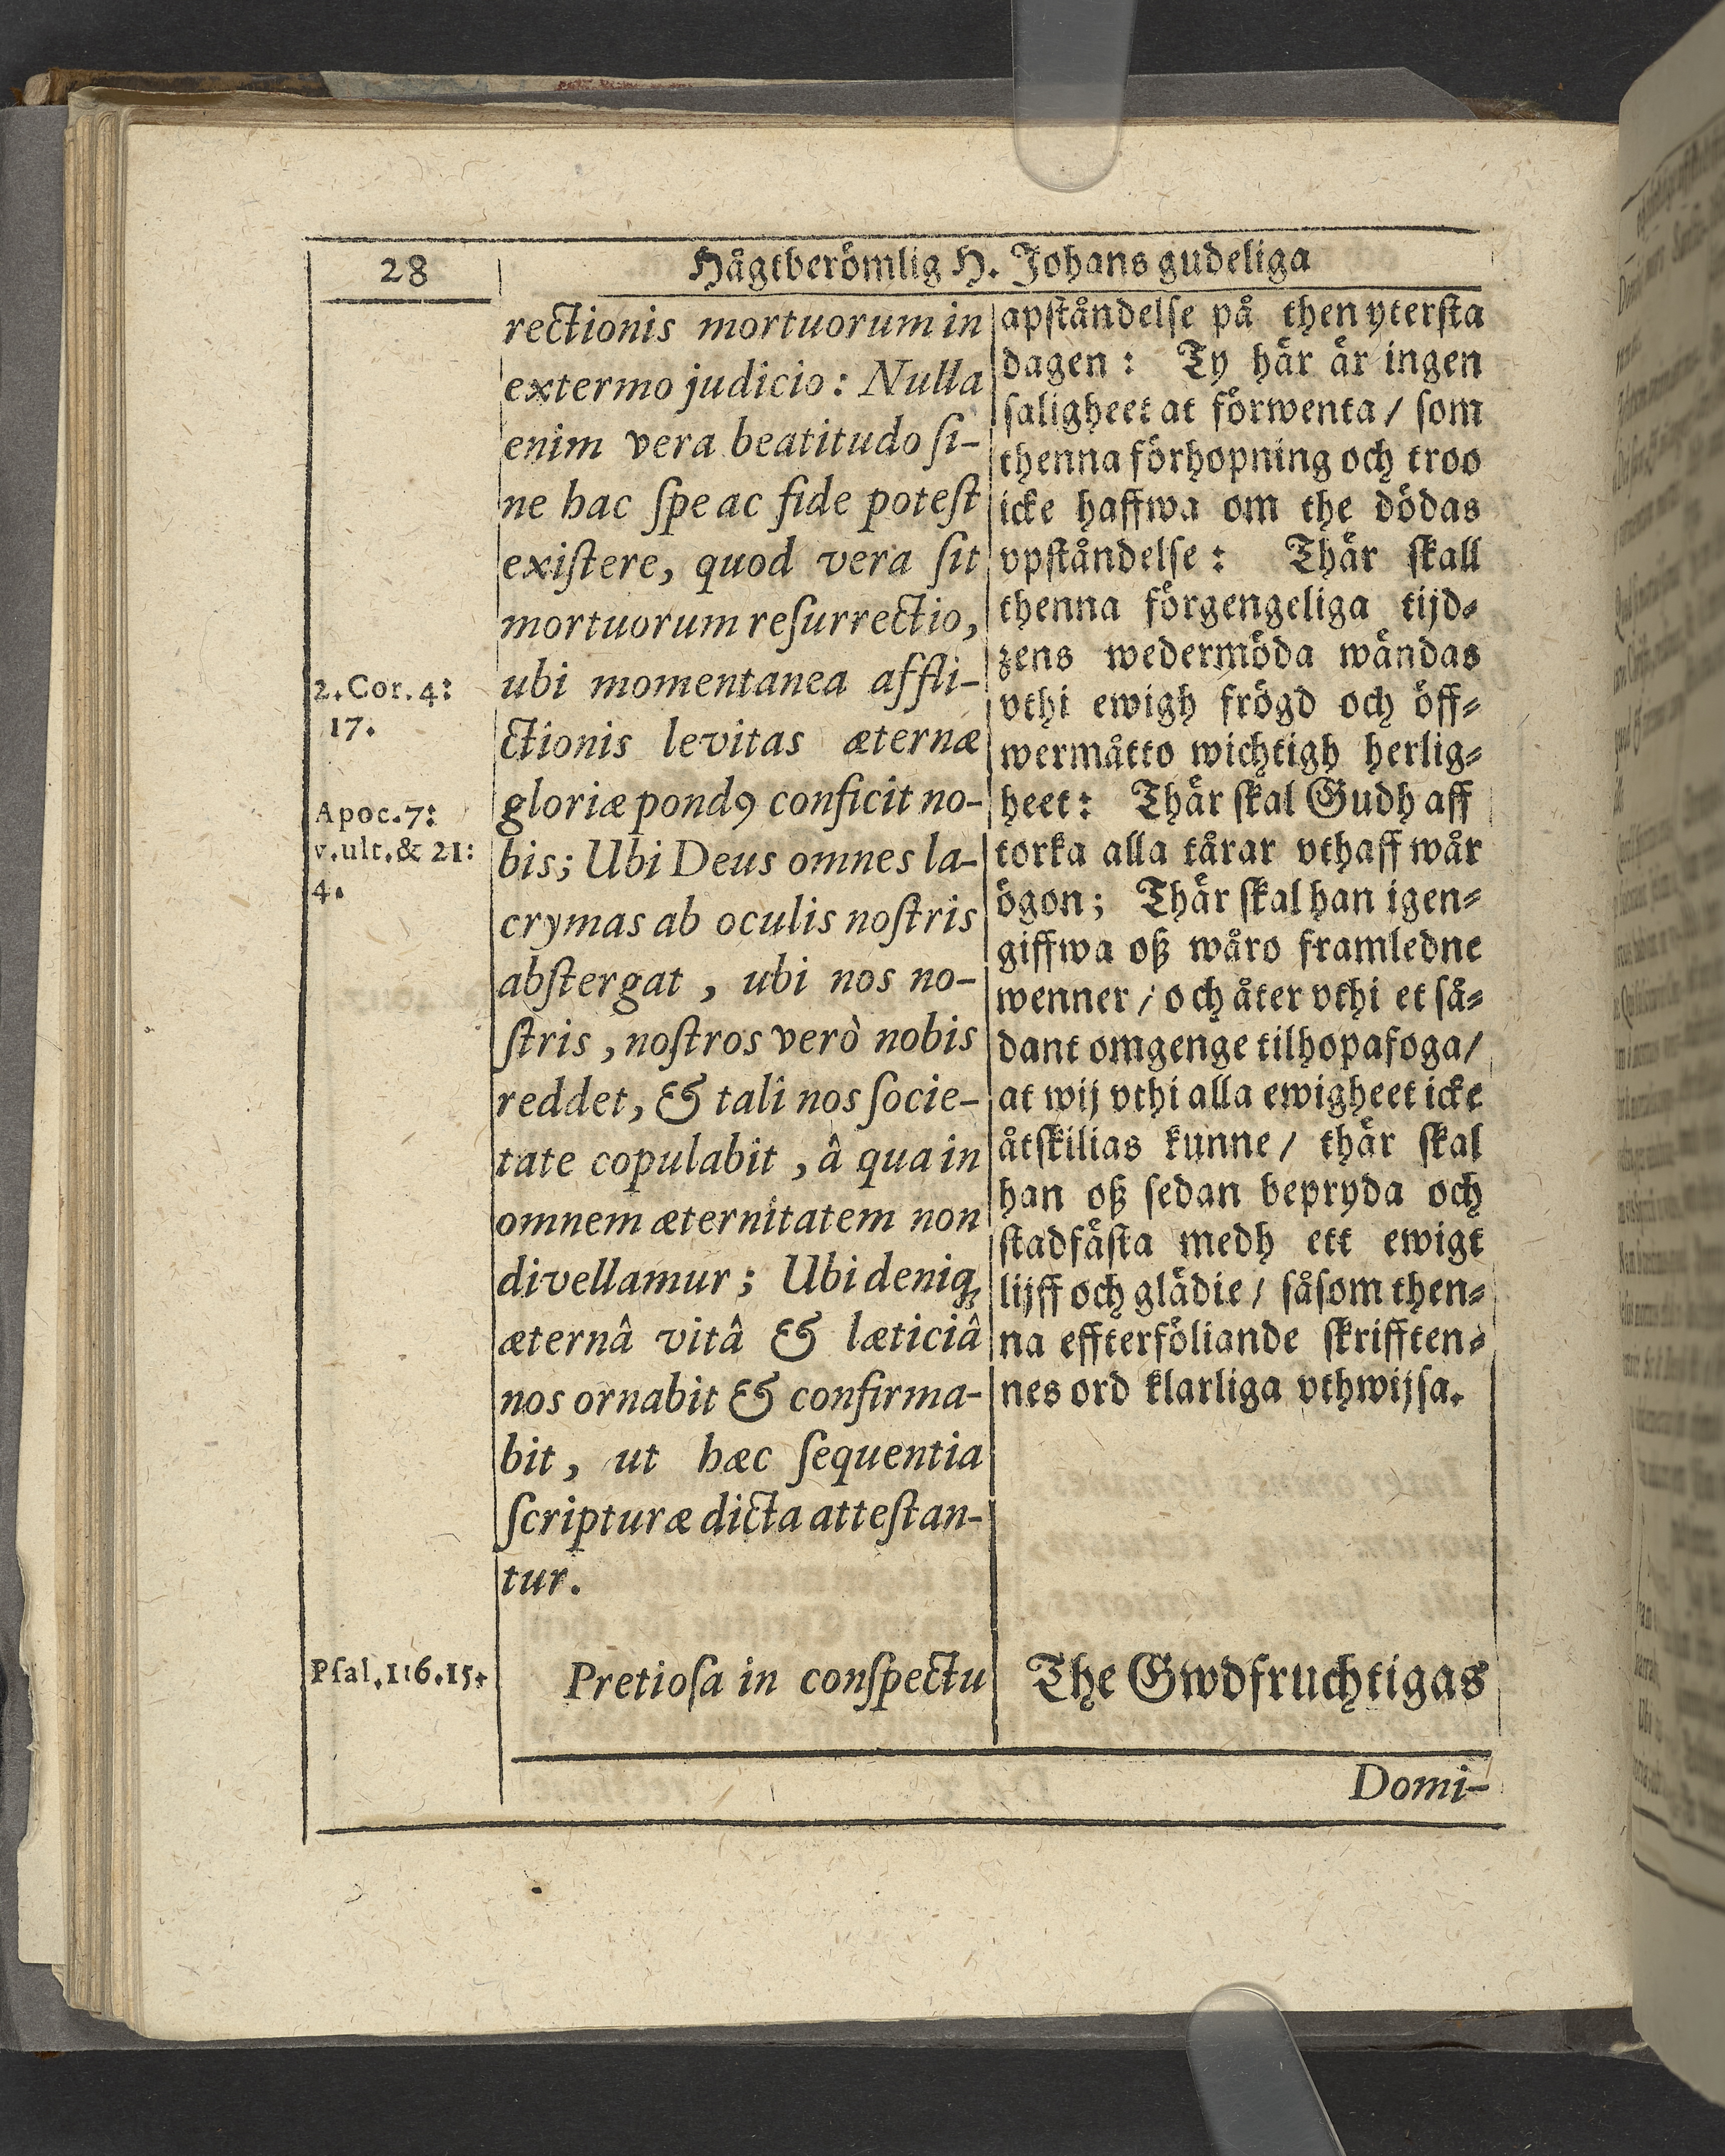 28
Hågtberömlig H. Johans gudeliga
2. Cor. 4:
17.
Apoc. 7:
v. ult. & 21:
4.
Psal. 116. 15.
rectionis mortuorum in
extermo judicio: Nulla
enim vera beatitudo ſi-
ne hac ſpe ac fide poteſt
exiſtere, quod vera ſit
mortuorum reſurrectio,
ubi momentanea affli-
ctionis levitas æternæ
gloriæ pondꝰ conficit no-
bis; Ubi Deus omnes la-
crymas ab oculis noſtris
abſtergat, ubi nos no-
ſtris, noſtros verò nobis
reddet, & tali nos ſocie-
tate copulabit, â qua in
omnem æternitatem non
divellamur; Ubi deniq;
æternâ vitâ & læticiâ
nos ornabit & confirma-
bit, ut hæc ſequentia
ſcripturæ dicta atteſtan-
tur.
Pretioſa in conſpectu
apſtåndelſe på then yterſta
dagen: Ty här är ingen
ſaligheet at förwenta / ſom
thenna förhopning och troo
icke haffwa om the dödas
vpſtåndelſe: Thär ſkall
thenna förgengeliga tijd-
zens wedermöda wändas
vthi ewigh frögd och öff-
wermåtto wichtigh herlig-
heet: Thär ſkal Gudh aff
torka alla tårar vthaff wår
ögon; Thär ſkal han igen-
giffwa oß wåro framledne
wenner / och åter vthi et ſå-
dant omgenge tilhopafoga /
at wij vthi alla ewigheet icke
åtſkilias kunne / thär ſkal
han oß ſedan bepryda och
ſtadfäſta medh ett ewigt
lijff och glädie / ſåſom then-
na effterföliande ſkrifften-
nes ord klarliga vthwijſa.
The Gwdfruchtigas
Domi-